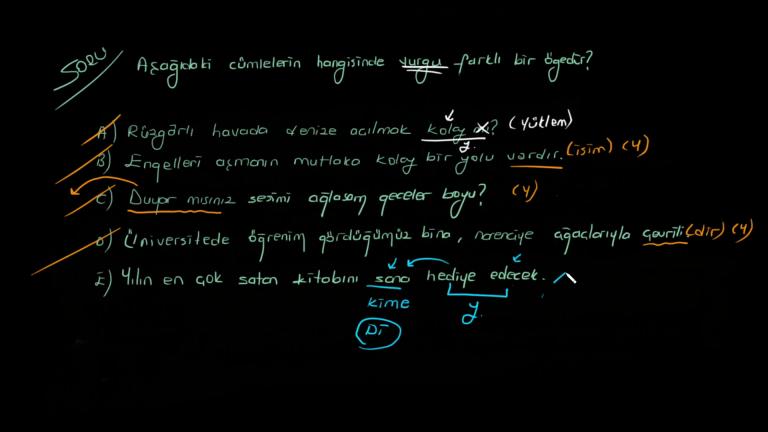 SORU
Aşağıdaki cümlelerin hangisinde vurgu farklı bir ögedir?
A) Rüzgârlı havada denize açılmak kolay mı? (yüklem)
y.
B) Engelleri aşmanın mutlaka kolay bir yolu vardır. (isim) (y)
C) Duyar mısınız sesimi ağlasam geceler boyu? (y)
D) Üniversitede öğrenim gördüğümüz bina, narenciye ağaçlarıyla çevrili (dir) (y)
E) Yılın en çok satan kitabını sana hediye edecek.
kime y.
DT